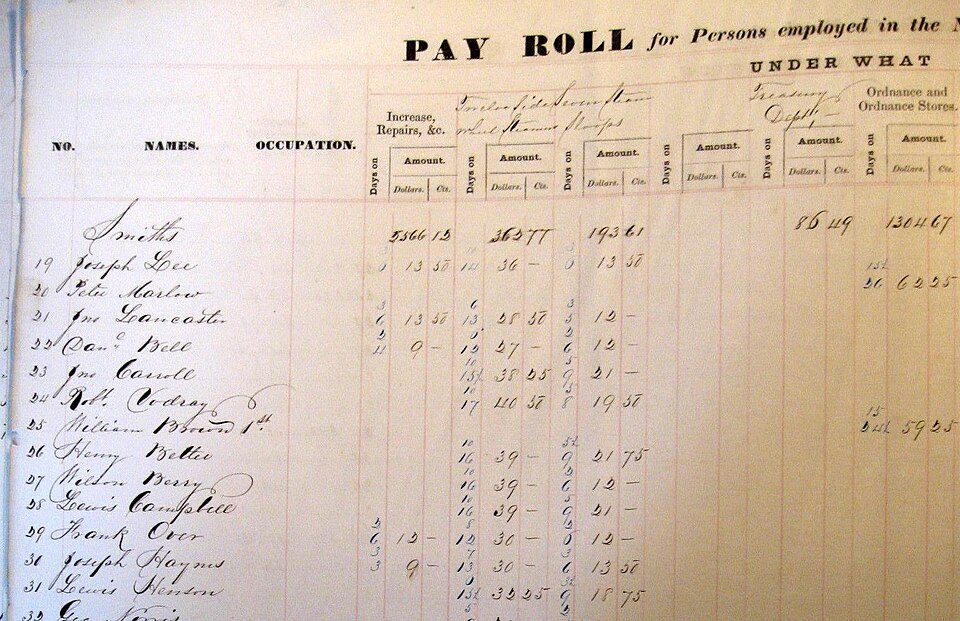 PAY ROLL for Persons employed in the N
UNDER WHAT
NO. NAMES. OCCUPATION.
Increase, Repairs, &c. Twelve Side Seven Steam Treasury Ordnance and
wheel Steamers Sloops Dept, Ordnance Stores.
Days on Amount. Days on Amount. Days on Amount. Days on Amount. Days on Amount. Days on Amount.
Dollars. Cts. Dollars. Cts. Dollars. Cts. Dollars. Cts. Dollars. Cts. Dollars. Cts.
Smiths 5566 12 362 77 193 61 86 49 1304 67
19 Joseph Lee 13 50 14 36 – 13 50
20 Peter Marlow 26 62 25
21 Jno Lancaster 6 13 50 13 28 50 5 12 –
22 Danl Bell 4 9 – 12 27 – 6 12 –
23 Jno Carroll 15½ 38 25 9 21 –
24 Robt. Vodray 17 40 50 8 19 50
25 William Brown 1st 24½ 59 25
26 Henry Beltee 16 39 – 9 21 75
27 Wilson Berry 16 39 – 6 12 –
28 Lewis Campbell 16 39 – 9 21 –
29 Frank Over 6 12 – 12 30 – 6 12 –
30 Joseph Haynes 3 9 – 13 30 – 6 13 50
31 Lewis Henson 15½ 32 25 9 18 75
32 Geo Norris